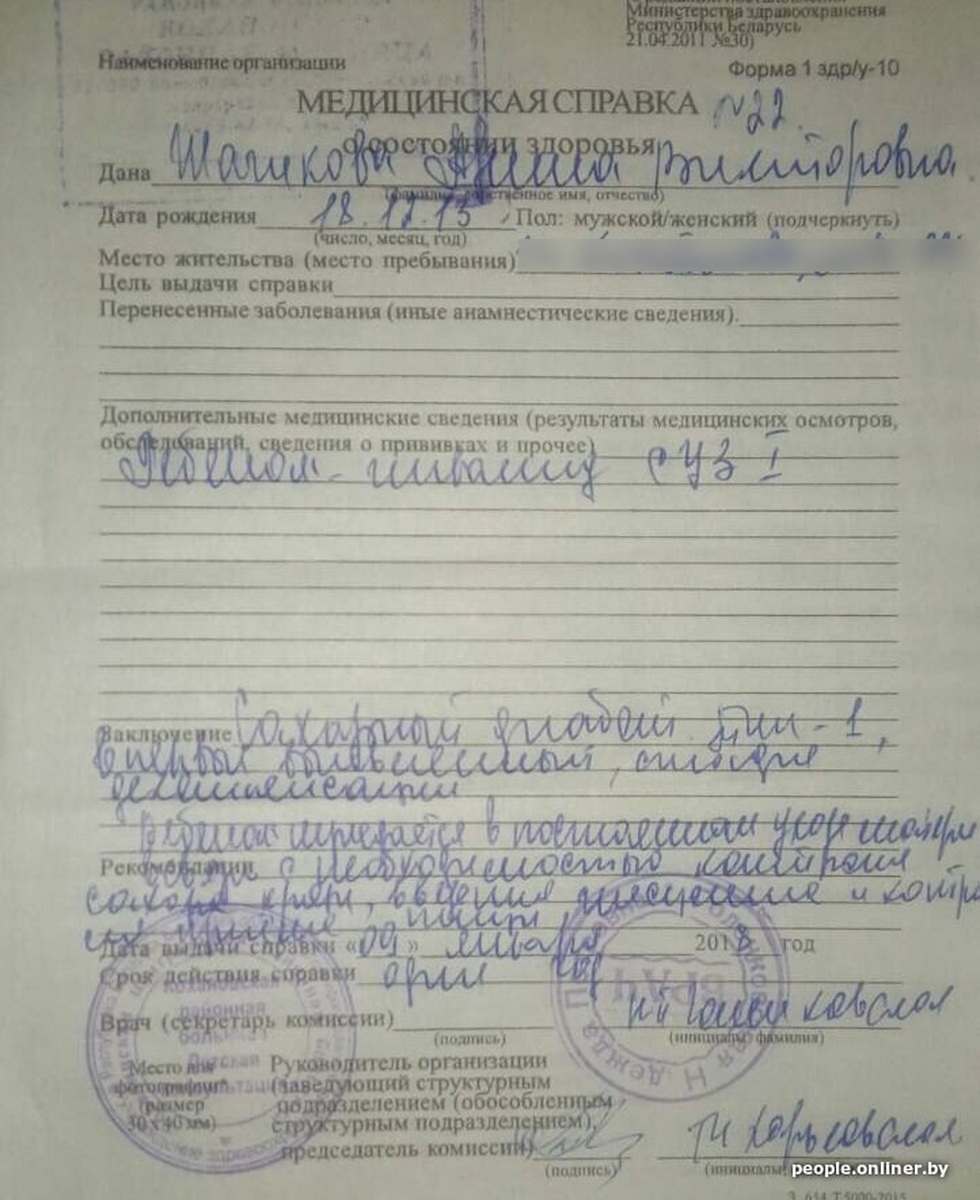 Министерства здравоохранения
Республики Беларусь
21.04.2011 №30)
Наименование организации
Форма 1 здр/у-10
МЕДИЦИНСКАЯ СПРАВКА №22
о состоянии здоровья
Дана Викторовна
(фамилия, собственное имя, отчество)
Дата рождения 18.12.13 Пол: мужской/женский (подчеркнуть)
(число, месяц, год)
Место жительства (место пребывания)
Цель выдачи справки
Перенесенные заболевания (иные анамнестические сведения).
Дополнительные медицинские сведения (результаты медицинских осмотров,
обследований, сведения о прививках и прочее)
Ребенок - инвалид с УЗ I
Заключение Сахарный диабет тип-1,
впервые выявленный, стадия
декомпенсации
Ребенок нуждается в постоянном
Рекомендации с необходимостью контроля
сахара крови, введения инсулина и
пищи
Дата выдачи справки «09» января 2018 год
Срок действия справки один год
Врач (секретарь комиссии)
(подпись)
(инициалы, фамилия)
Место для
фотографии
(размер
30х40мм)
Руководитель организации
(заведующий структурным
подразделением (обособленным
структурным подразделением),
председатель комиссии)
(подпись)
(инициалы
районная
больница
Детская
консультация
ВРАЧ
people.onliner.by